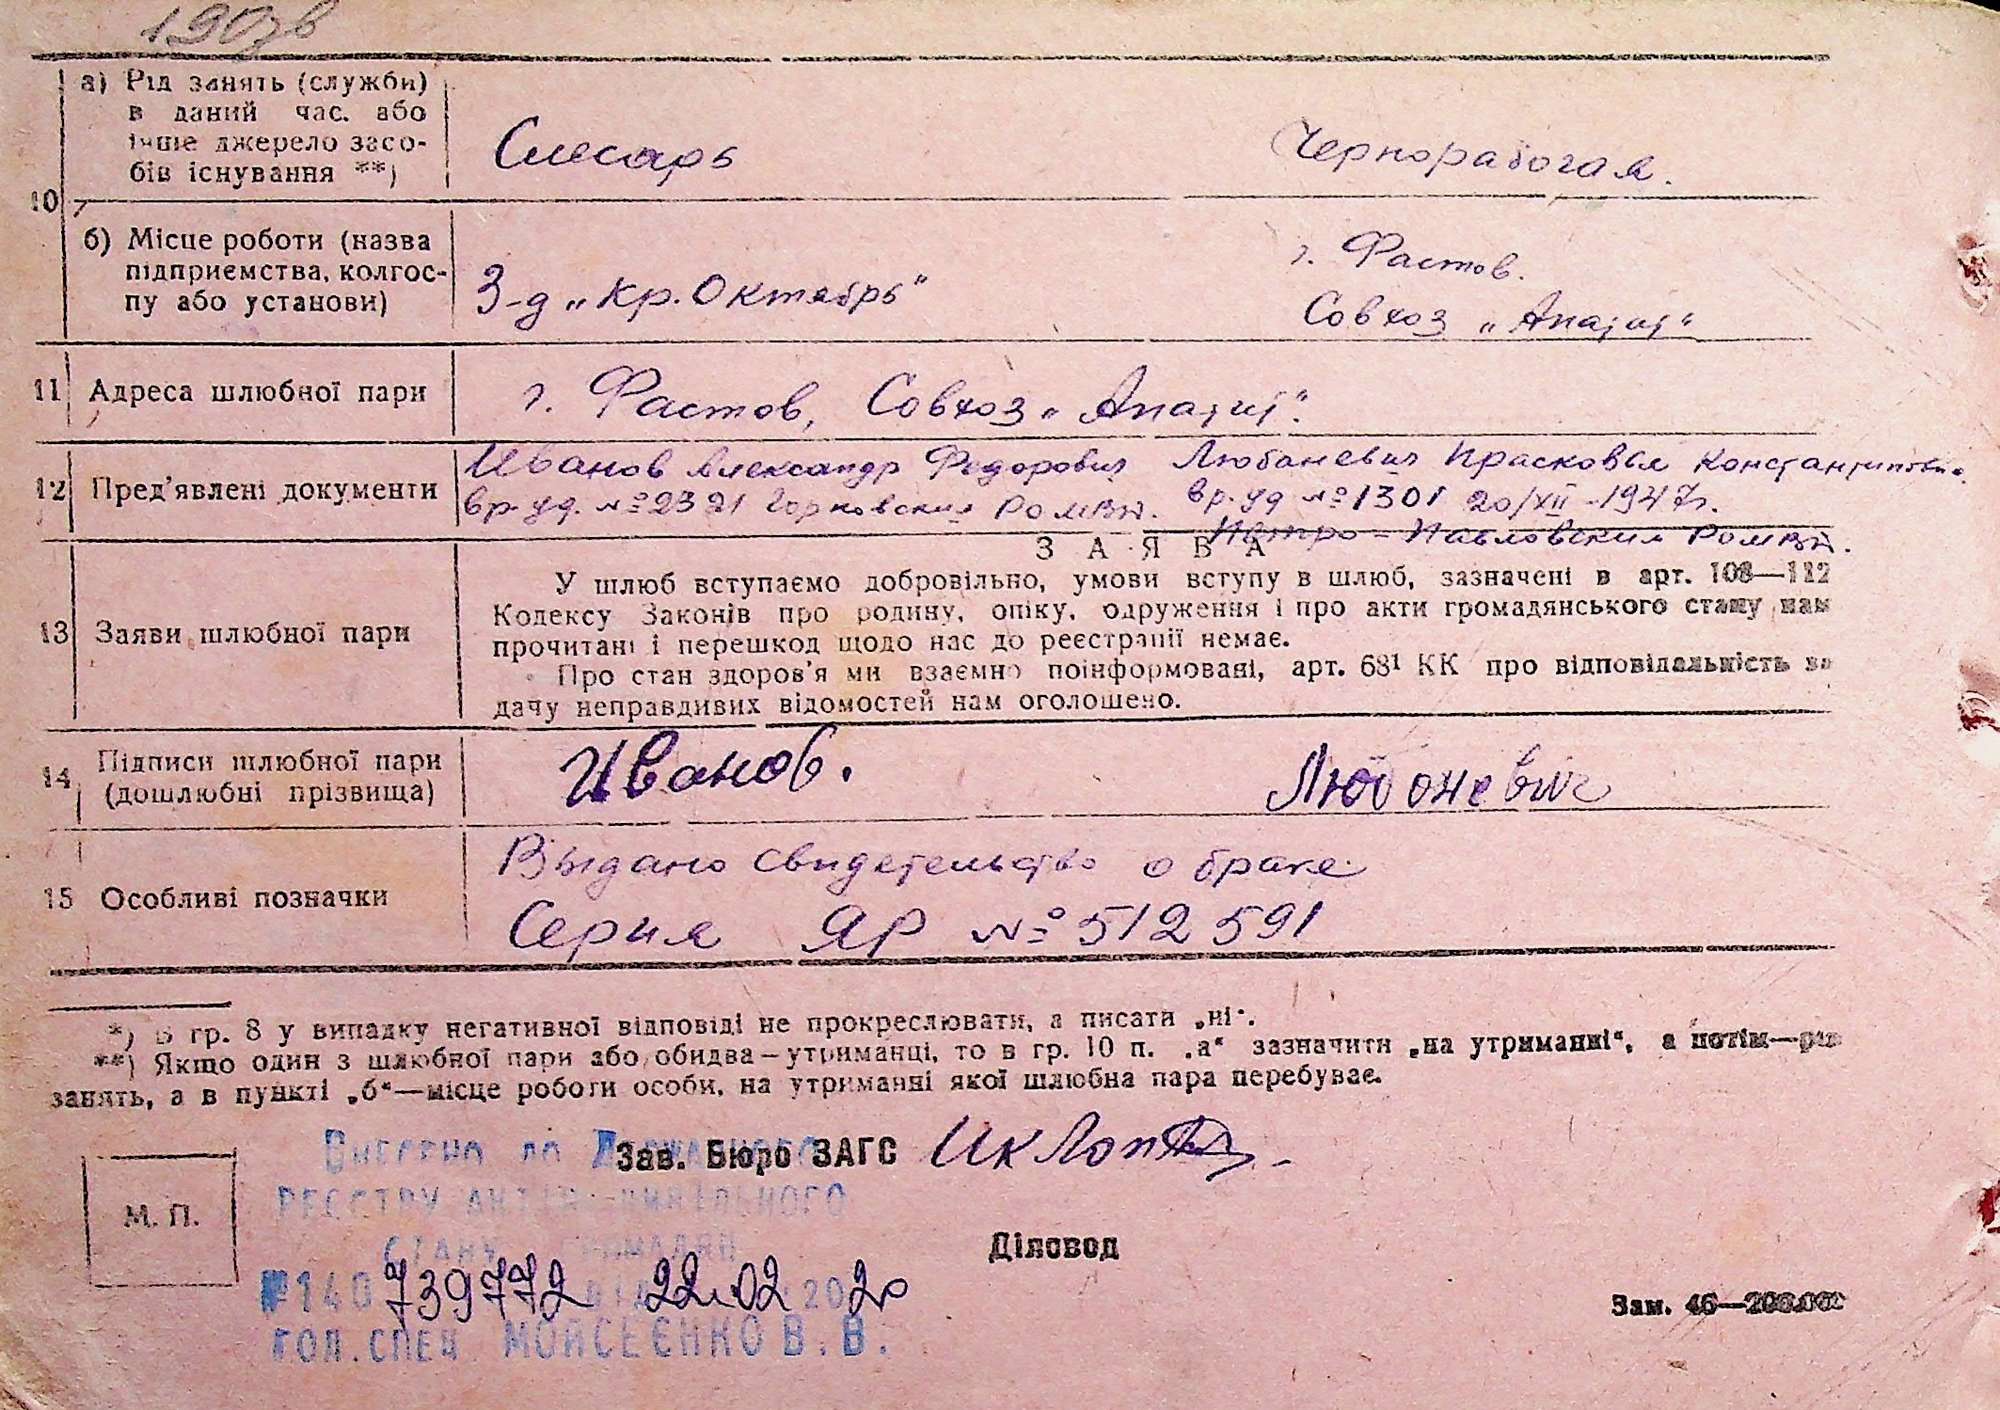 190зв
а) Рід занять (служби)
в даний час. або
інше джерело засо-
бів існування **)
Слесарь
Чернорабочая.
10
б) Місце роботи (назва
підприємства, колгос-
пу або установи)
З-д „Кр. Октябрь"
г. Фастов.
Совхоз „Апатит"
11 Адреса шлюбної пари
г. Фастов, Совхоз „Апатит".
12 Пред'явлені документи
Иванов Александр Федорович
вр. уд. № 2321 Горковский РОМВД.
Любаневич Прасковья Константиновна
вр. уд № 1301 20/XII - 1947г.
Петро-Павловским РОМВД.
13 Заяви шлюбної пари
ЗАЯВА
У шлюб вступаємо добровільно, умови вступу в шлюб, зазначені в арт. 108—112
Кодексу Законів про родину, опіку, одруження і про акти громадянського стану нам
прочитані і перешкод щодо нас до реєстрації немає.
Про стан здоров'я ми взаємно поінформовані, арт. 68¹ КК про відповідальність за
дачу неправдивих відомостей нам оголошено.
14 Підписи шлюбної пари
(дошлюбні прізвища)
Иванов.
Любоневич
15 Особливі позначки
Выдано свидетельство о браке
Серия ЯР № 512591
*) В гр. 8 у випадку негативної відповіді не прокреслювати, а писати „ні".
**) Якщо один з шлюбної пари або обидва – утриманці, то в гр. 10 п. „а" зазначити „на утриманні", а потім—рід
занять, а в пункті „б"—місце роботи особи, на утриманні якої шлюбна пара перебуває.
Зав. Бюро ЗАГС
Внесено до Державного
реєстру актів цивільного
М. П.
стану громадян
Діловод
№140 739772 від 22.02 2020
гол. спец. Мойсеєнко В. В.
Зам. 46—200.000